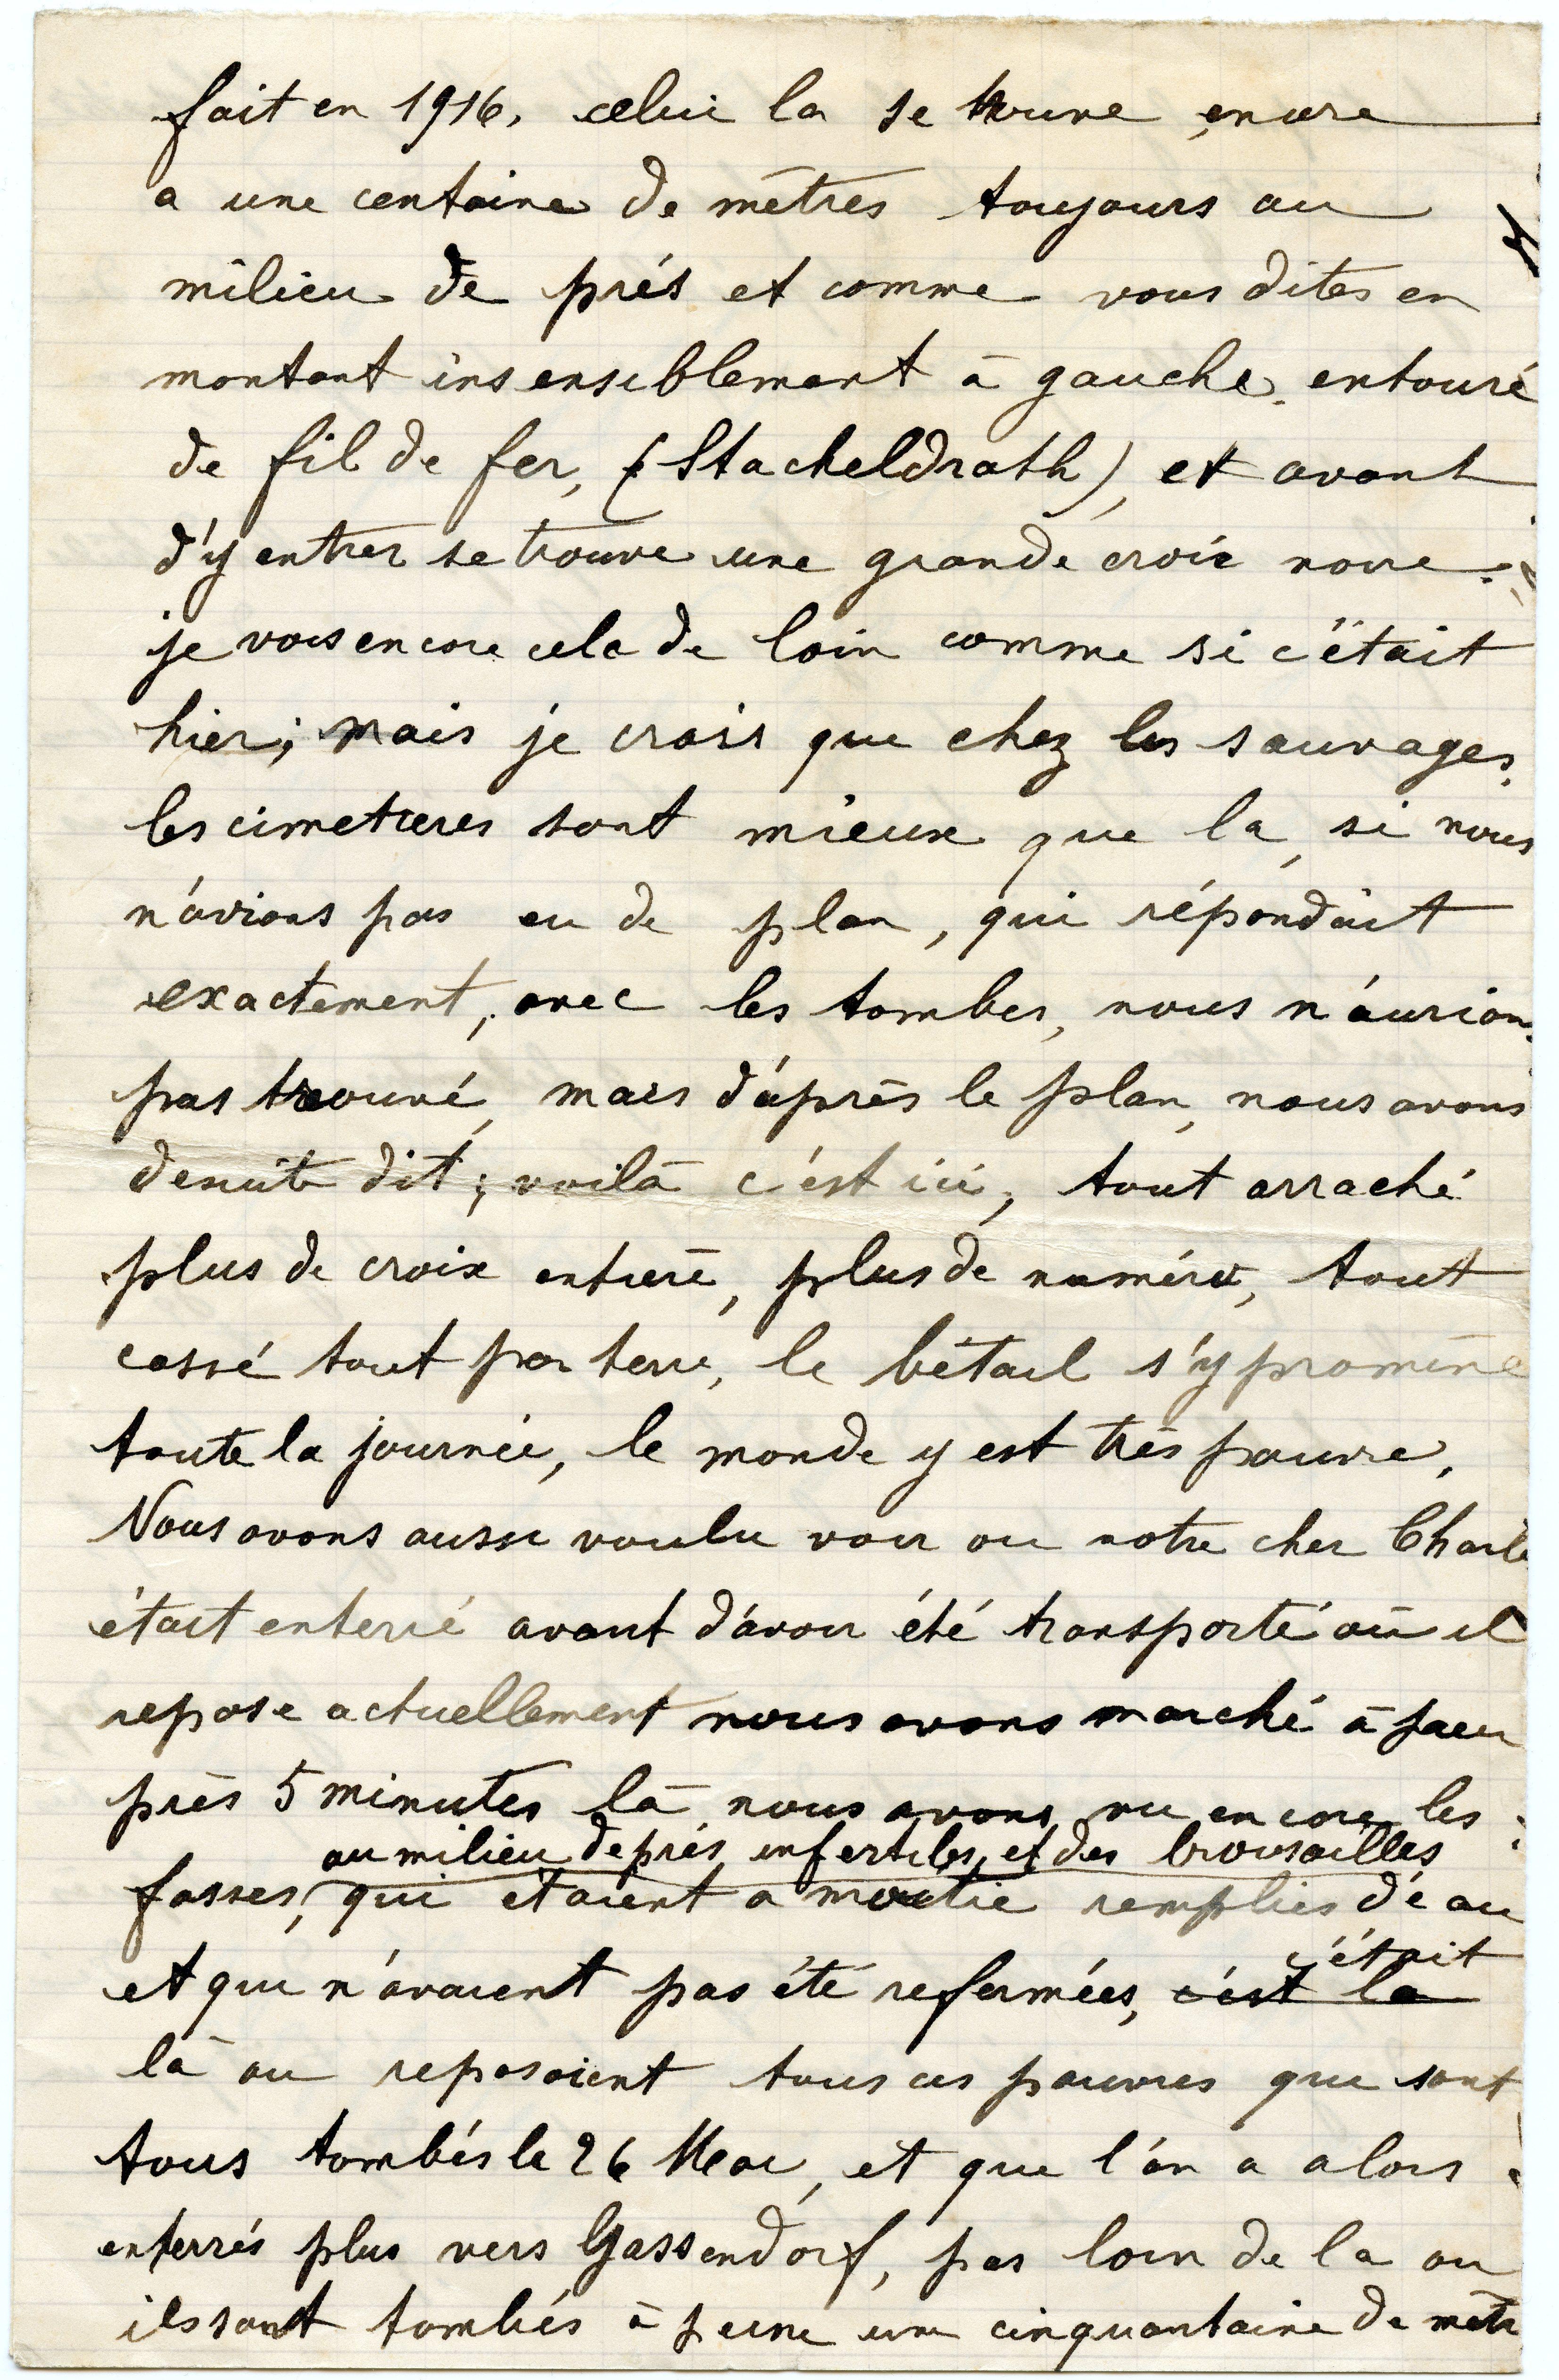 fait en 1916, celui la se trouve encore
a une centaine de mètres toujours au
milieu de prés et comme vous dites en
montant insensiblemant à gauche, entouré
de fil de fer, (Stacheldrath), et avant
d'y entrer se trouve une grande croix noire.
je vois encore cela de loin comme si c'était
hier; mais je crois que chez les sauvages,
les cimetieres sont mieux que la, si nous
n'avions pas eu de plan, qui répondait
exactement, avec les tombes, nous n'aurions
pas trouvé, mais d'après le plan, nous avons
desuite dit; voilà c'est ici, tout arraché
plus de croix entiere, plus de numéro, tout
cassé tout par terre, le bétail s'y promène
toute la journée, le monde y est très pauvre,
Nous avons aussi voulu voir ou notre cher Charle
était enterré avant d'avoir été transporté où il
repose actuellement nous avons marché à peu
près 5 minutes là nous avons vu encore les
au milieu de prés infertiles, et des brousailles
fosses, qui etaient a moitie remplies d'eau
c'était
et qui n'avaient pas été refermées, c'est la
là ou reposaient tous ces pauvres que sont
tous tombés le 26 Mai, et que l'on a alors
enterrés plus vers Gassendorf, pas loin de la ou
ils sont tombés à peine une cinquantaine de mètr